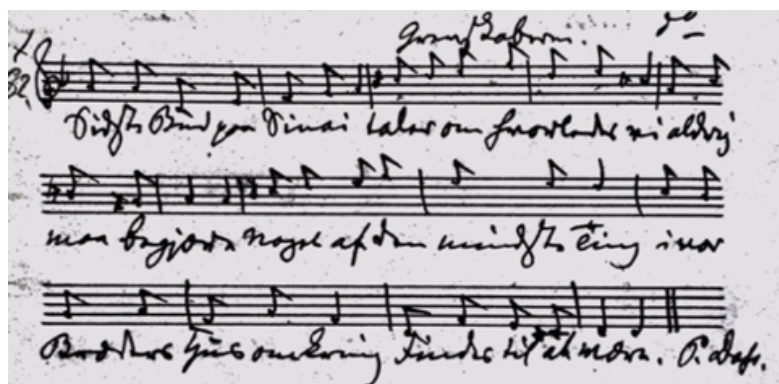 Sidste Bud paa Sinai taler om hvorledes vi aldrig
maa begjære noget af den mindste Ting i vor
Broders Huus omkring Findes til at være. P. Dass.